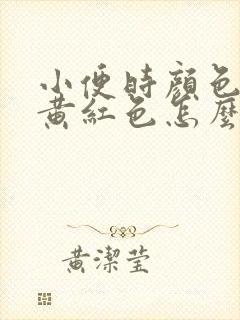 小便時顏色
黃紅色怎麼
黃潔瑩